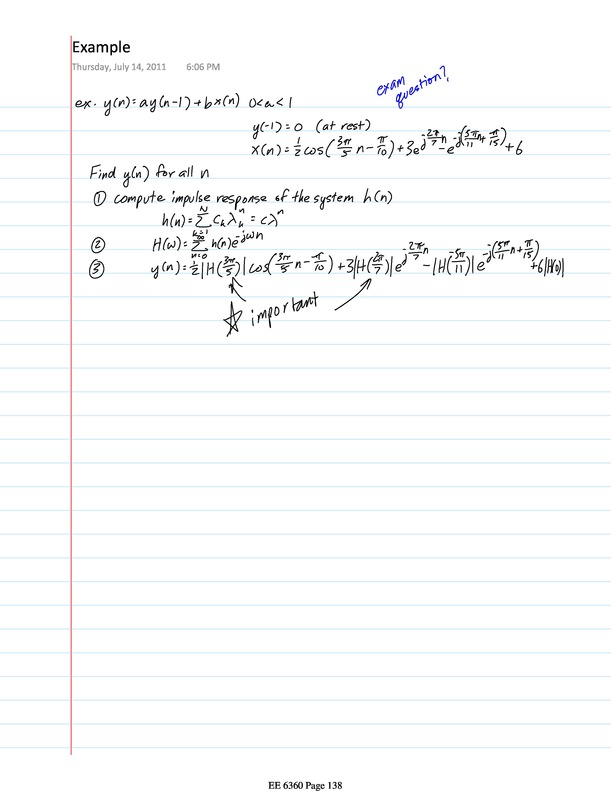 Example
Thursday, July 14, 2011 6:06 PM
exam question?
ex. y(n) = ay(n-1) + bx(n) 0<a<1
y(-1) = 0 (at rest)
x(n) = 1/2 cos(3π/5 n - π/10) + 3e^{j 2π/7 n} - e^{-j(5π/11 n + π/15)} + 6
Find y(n) for all n
① compute impulse response of the system h(n)
h(n) = Σ_{k=1}^{N} C_k λ_k^n = cλ^n
② H(ω) = Σ_{n=0}^{∞} h(n)e^{-jωn}
③ y(n) = 1/2 |H(3π/5)| cos(3π/5 n - π/10) + 3|H(2π/7)| e^{j 2π/7 n} - |H(-5π/11)| e^{-j(5π/11 n + π/15)} + 6|H(0)|
☆ important
EE 6360 Page 138